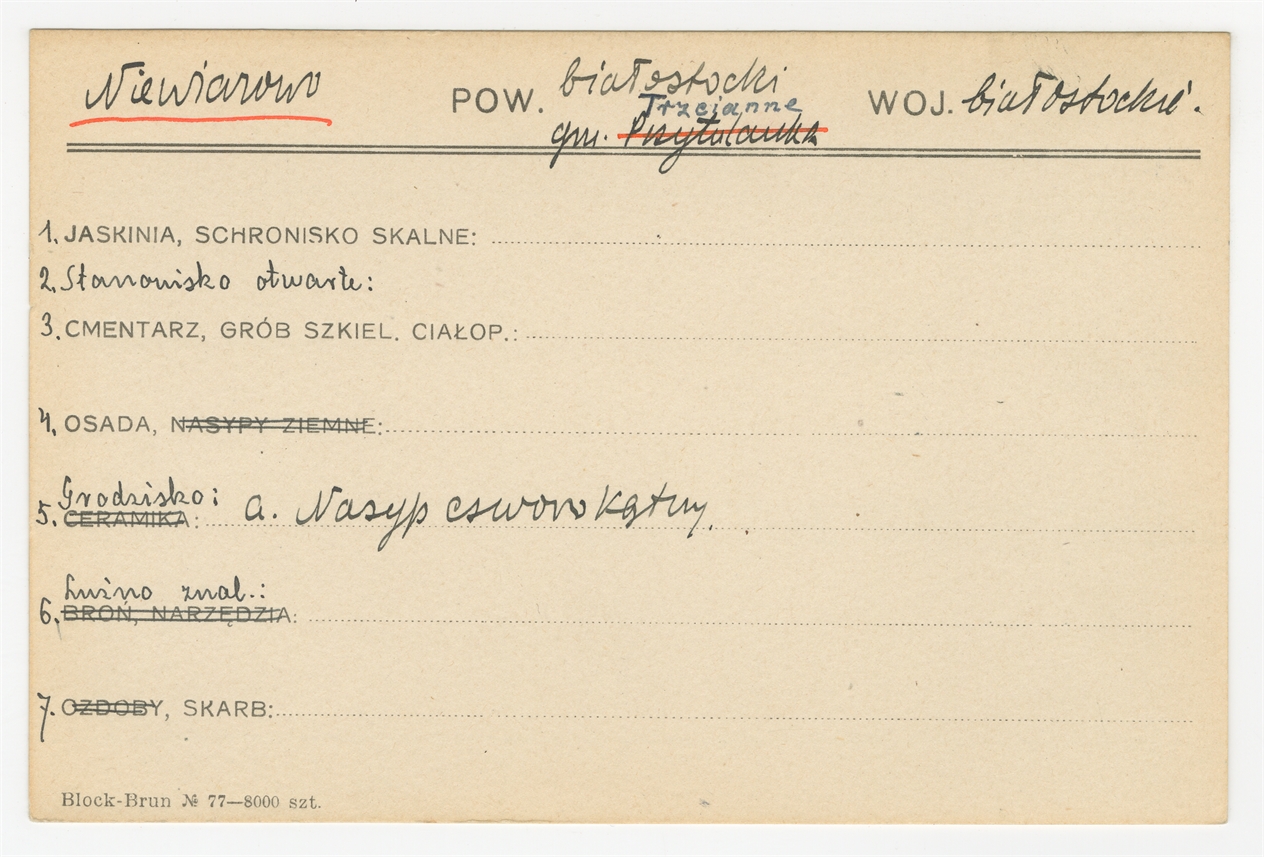 Niewiarowo POW. białostocki WOJ. białostockie.
Trzcianne
gm. Przytulanka
1. JASKINIA, SCHRONISKO SKALNE:
2. Stanowisko otwarte:
3. CMENTARZ, GRÓB SZKIEL. CIAŁOP.:
4. OSADA, NASYPY ZIEMNE:
Grodzisko:
5. CERAMIKA: a. Nasyp czworokątny.
Luźno znal.:
6. BROŃ, NARZĘDZIA:
7. OZDOBY, SKARB:
Block-Brun № 77—8000 szt.